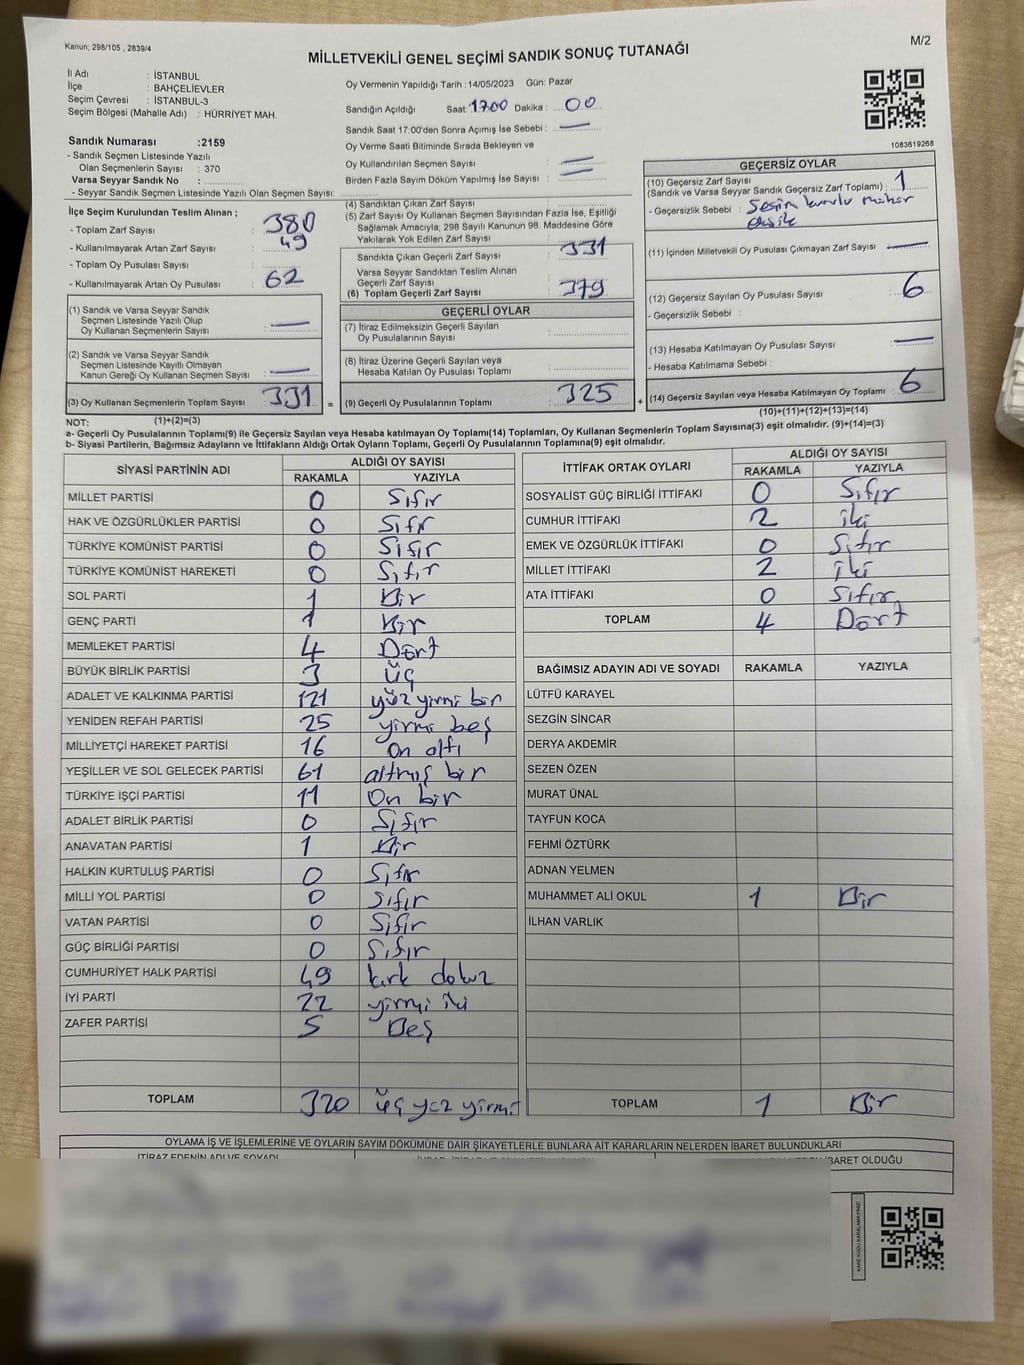 Kanun; 298/105 , 2839/4
MİLLETVEKİLİ GENEL SEÇİMİ SANDIK SONUÇ TUTANAĞI
M/2
İl Adı : İSTANBUL
İlçe : BAHÇELİEVLER
Seçim Çevresi : İSTANBUL-3
Seçim Bölgesi (Mahalle Adı) : HÜRRİYET MAH.
Sandık Numarası :2159
- Sandık Seçmen Listesinde Yazılı
Olan Seçmenlerin Sayısı : 370
Varsa Seyyar Sandık No :
- Seyyar Sandık Seçmen Listesinde Yazılı Olan Seçmen Sayısı:
Oy Vermenin Yapıldığı Tarih : 14/05/2023 Gün: Pazar
Sandığın Açıldığı Saat: 17.00 Dakika : 00
Sandık Saat 17:00'den Sonra Açımış İse Sebebi : —
Oy Verme Saati Bitiminde Sırada Bekleyen ve
Oy Kullandırılan Seçmen Sayısı : —
Birden Fazla Sayım Döküm Yapılmış İse Sayısı : —
1083619268
İlçe Seçim Kurulundan Teslim Alınan ;
- Toplam Zarf Sayısı : 380
- Kullanılmayarak Artan Zarf Sayısı : 49
- Toplam Oy Pusulası Sayısı :
- Kullanılmayarak Artan Oy Pusulası : 62
(1) Sandık ve Varsa Seyyar Sandık
Seçmen Listesinde Yazılı Olup
Oy Kullanan Seçmenlerin Sayısı : —
(2) Sandık ve Varsa Seyyar Sandık
Seçmen Listesinde Kayıtlı Olmayan
Kanun Gereği Oy Kullanan Seçmen Sayısı : —
(3) Oy Kullanan Seçmenlerin Toplam Sayısı : 331 =
(4) Sandıktan Çıkan Zarf Sayısı :
(5) Zarf Sayısı Oy Kullanan Seçmen Sayısından Fazla İse, Eşitliği
Sağlamak Amacıyla; 298 Sayılı Kanunun 98. Maddesine Göre
Yakılarak Yok Edilen Zarf Sayısı :
Sandıkta Çıkan Geçerli Zarf Sayısı : 331
Varsa Seyyar Sandıktan Teslim Alınan
Geçerli Zarf Sayısı :
(6) Toplam Geçerli Zarf Sayısı : 379
GEÇERLİ OYLAR
(7) İtiraz Edilmeksizin Geçerli Sayılan
Oy Pusulalarının Sayısı :
(8) İtiraz Üzerine Geçerli Sayılan veya
Hesaba Katılan Oy Pusulası Toplamı :
(9) Geçerli Oy Pusulalarının Toplamı : 325 +
GEÇERSİZ OYLAR
(10) Geçersiz Zarf Sayısı
(Sandık ve Varsa Seyyar Sandık Geçersiz Zarf Toplamı) : 1
- Geçersizlik Sebebi : Seçim kurulu mühür
eksik
(11) İçinden Milletvekili Oy Pusulası Çıkmayan Zarf Sayısı : —
(12) Geçersiz Sayılan Oy Pusulası Sayısı : 6
- Geçersizlik Sebebi :
(13) Hesaba Katılmayan Oy Pusulası Sayısı : —
- Hesaba Katılmama Sebebi :
(14) Geçersiz Sayılan veya Hesaba Katılmayan Oy Toplamı : 6
NOT: (1)+(2)=(3) (10)+(11)+(12)+(13)=(14)
a- Geçerli Oy Pusulalarının Toplamı(9) ile Geçersiz Sayılan veya Hesaba katılmayan Oy Toplamı(14) Toplamları, Oy Kullanan Seçmenlerin Toplam Sayısına(3) eşit olmalıdır. (9)+(14)=(3)
b- Siyasi Partilerin, Bağımsız Adayların ve İttifakların Aldığı Ortak Oyların Toplamı, Geçerli Oy Pusulalarının Toplamına(9) eşit olmalıdır.
SİYASİ PARTİNİN ADI ALDIĞI OY SAYISI
RAKAMLA YAZIYLA
MİLLET PARTİSİ 0 Sıfır
HAK VE ÖZGÜRLÜKLER PARTİSİ 0 Sıfır
TÜRKİYE KOMÜNİST PARTİSİ 0 Sıfır
TÜRKİYE KOMÜNİST HAREKETİ 0 Sıfır
SOL PARTİ 1 Bir
GENÇ PARTİ 1 Bir
MEMLEKET PARTİSİ 4 Dört
BÜYÜK BİRLİK PARTİSİ 3 Üç
ADALET VE KALKINMA PARTİSİ 121 yüz yirmi bir
YENİDEN REFAH PARTİSİ 25 yirmi beş
MİLLİYETÇİ HAREKET PARTİSİ 16 On altı
YEŞİLLER VE SOL GELECEK PARTİSİ 61 altmış bir
TÜRKİYE İŞÇİ PARTİSİ 11 On bir
ADALET BİRLİK PARTİSİ 0 Sıfır
ANAVATAN PARTİSİ 1 Bir
HALKIN KURTULUŞ PARTİSİ 0 Sıfır
MİLLİ YOL PARTİSİ 0 Sıfır
VATAN PARTİSİ 0 Sıfır
GÜÇ BİRLİĞİ PARTİSİ 0 Sıfır
CUMHURİYET HALK PARTİSİ 49 kırk dokuz
İYİ PARTİ 22 yirmi iki
ZAFER PARTİSİ 5 Beş
TOPLAM 320 üç yüz yirmi
İTTİFAK ORTAK OYLARI ALDIĞI OY SAYISI
RAKAMLA YAZIYLA
SOSYALİST GÜÇ BİRLİĞİ İTTİFAKI 0 Sıfır
CUMHUR İTTİFAKI 2 iki
EMEK VE ÖZGÜRLÜK İTTİFAKI 0 Sıfır
MİLLET İTTİFAKI 2 iki
ATA İTTİFAKI 0 Sıfır
TOPLAM 4 Dört
BAĞIMSIZ ADAYIN ADI VE SOYADI RAKAMLA YAZIYLA
LÜTFÜ KARAYEL
SEZGİN SİNCAR
DERYA AKDEMİR
SEZEN ÖZEN
MURAT ÜNAL
TAYFUN KOCA
FEHMİ ÖZTÜRK
ADNAN YELMEN
MUHAMMET ALİ OKUL 1 Bir
İLHAN VARLIK
TOPLAM 1 Bir
OYLAMA İŞ VE İŞLEMLERİNE VE OYLARIN SAYIM DÖKÜMÜNE DAİR ŞİKAYETLERLE BUNLARA AİT KARARLARIN NELERDEN İBARET BULUNDUKLARI
İTİRAZ EDENİN ADI VE SOYADI İBARET OLDUĞU
KARE KODU KARALAMAYINIZ!